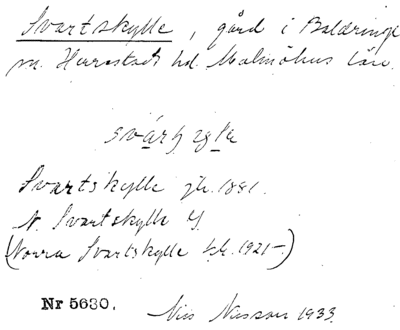 Svartskylle, gård i Baldringe
sn. Herrestads hd. Malmöhus län.
Svartskylle jb. 1881.
N. Svartskylle
(Norra Svartskylle kb. 1921-)
Nr 5630. Nils Nilsson 1933.